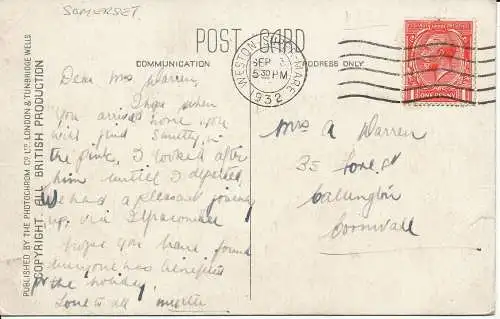 SOMERSET.
POST CARD
COMMUNICATION
ADDRESS ONLY
WESTON SUPER MARE
SEP
5 30 PM
1932
ONE PENNY
PUBLISHED BY THE PHOTOCHROM CO. LTD. LONDON & TUNBRIDGE WELLS
COPYRIGHT. ALL BRITISH PRODUCTION
Dear Mrs Warren,
I hope when
you arrived home you
will find Smutty in
the pink, I looked after
him untill I departed,
We had a pleasant journey
up, via Ilfracombe
hope you have found
everyone has benefited
for the holiday
Love to all Myrtle
Mrs A Warren
35 Fore St
Callington
Cornwall